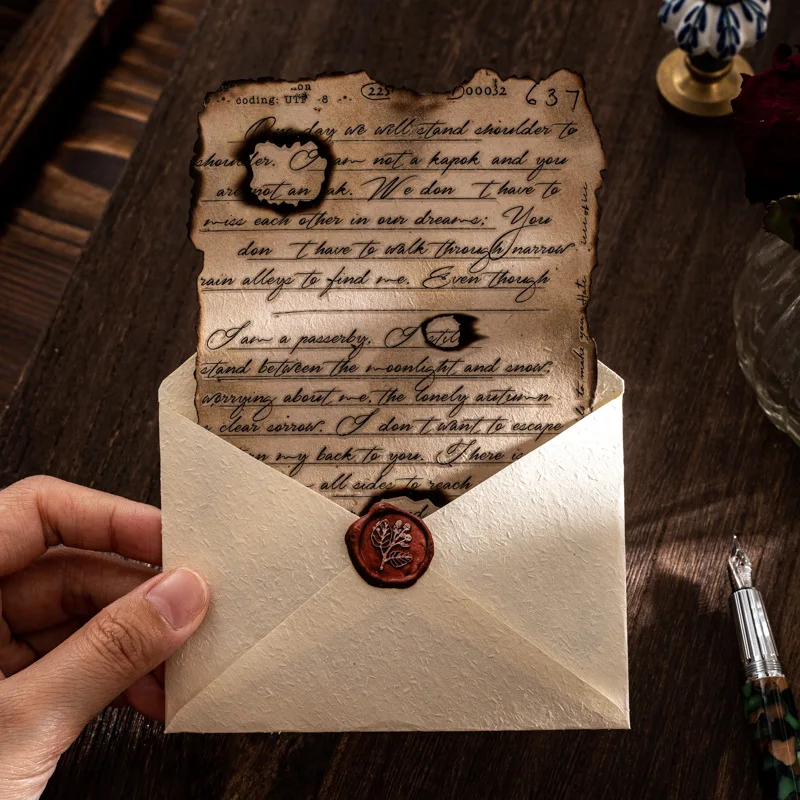 on 225 00032 637
coding: UTF-8
One day we will stand shoulder to
shoulder. I am not a kapok and you
are not an oak. We don t have to
miss each other in our dreams; You
don t have to walk through narrow
rain alleys to find me. Even though
I am a passerby, I still
stand between the moonlight and snow,
worrying about me. the lonely autumn
clear sorrow. I don t want to escape
my back to you. There is
all sides to reach
to make you